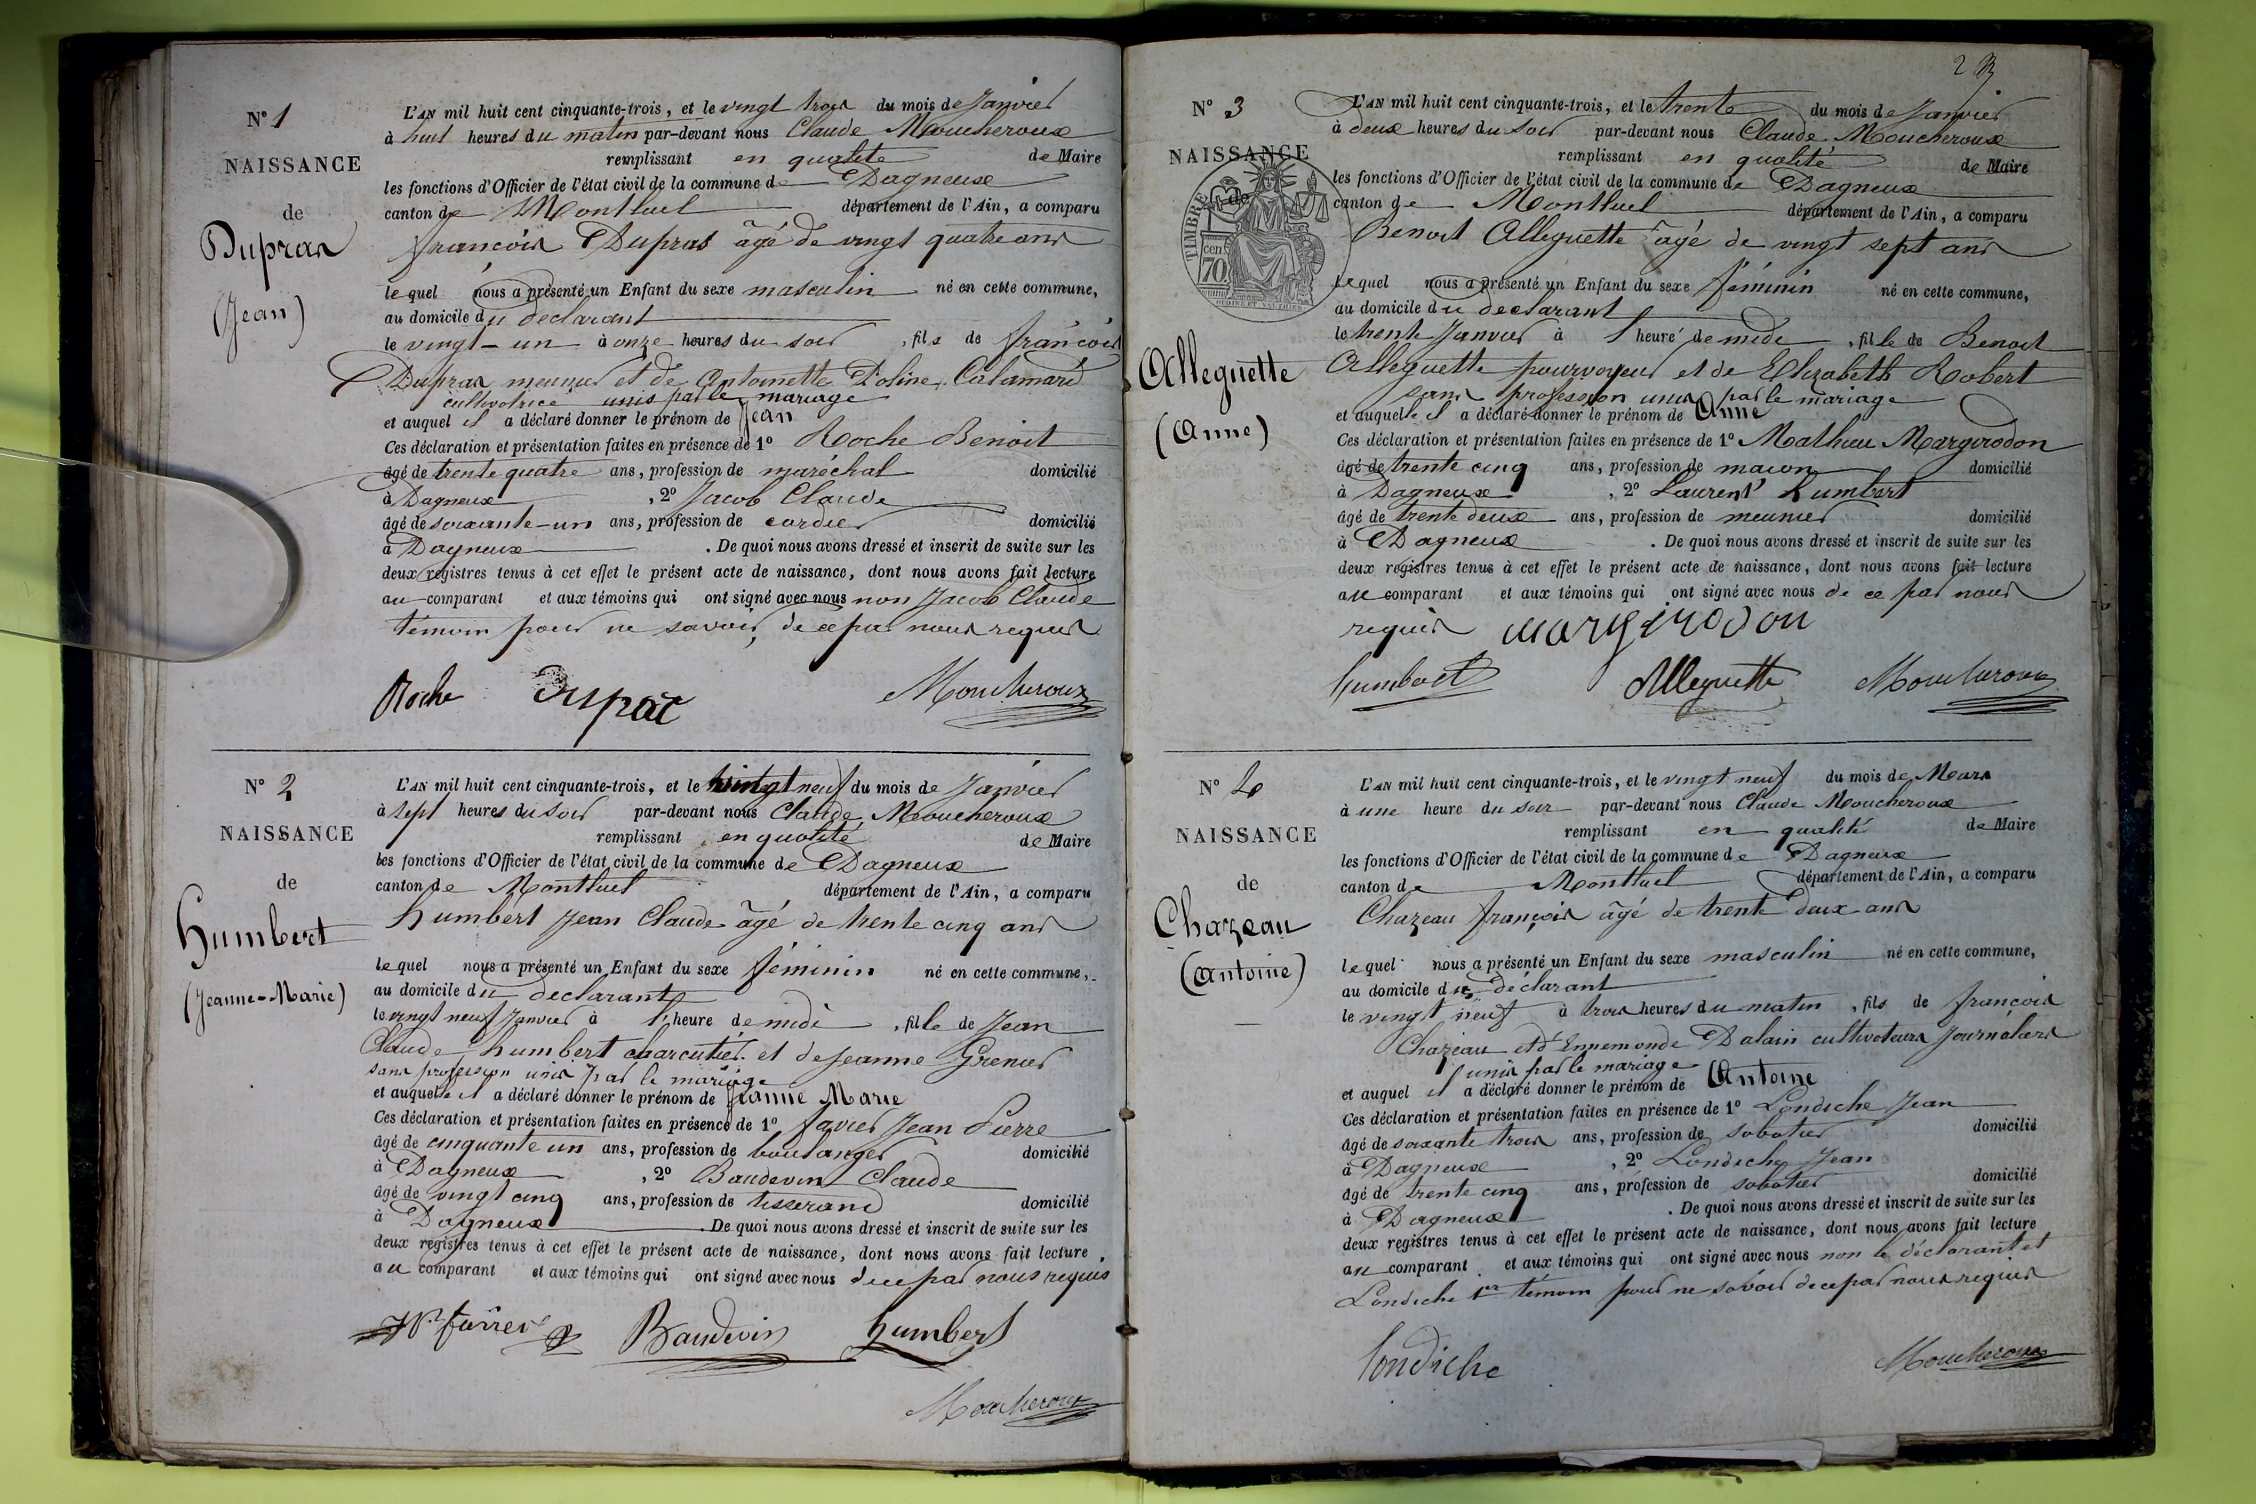 N° 1
NAISSANCE
de
Dupras
(Jean)
L'AN mil huit cent cinquante-trois, et le vingt trois du mois de Janvier
à huit heures du matin par-devant nous Claude Moucheroux
remplissant en qualité de Maire
les fonctions d'Officier de l'état civil de la commune de Dagneux
canton de Montluel département de l'Ain, a comparu
françois Dupras âgé de vingt quatre ans
lequel nous a présenté un Enfant du sexe masculin né en cette commune,
au domicile du déclarant
le vingt-un à onze heures du soir, fils de françois
Dupras meunier et de Antoinette Poline Calamard
cultivatrice unis par le mariage
et auquel il a déclaré donner le prénom de Jean
Ces déclaration et présentation faites en présence de 1° Roche Benoit
âgé de trente quatre ans, profession de maréchal domicilié
à Dagneux, 2° Jacob Claude
âgé de soixante-un ans, profession de cordier domicilié
à Dagneux. De quoi nous avons dressé et inscrit de suite sur les
deux registres tenus à cet effet le présent acte de naissance, dont nous avons fait lecture
au comparant et aux témoins qui ont signé avec nous non Jacob Claude
témoin pour ne savoir, de ce par nous requis
Roche Dupras Moucheroux
N° 2
NAISSANCE
de
Humbert
(Jeanne-Marie)
L'AN mil huit cent cinquante-trois, et le vingt neuf du mois de Janvier
à sept heures du soir par-devant nous Claude Moucheroux
remplissant en qualité de Maire
les fonctions d'Officier de l'état civil de la commune de Dagneux
canton de Montluel département de l'Ain, a comparu
humbert Jean Claude âgé de trente cinq ans
lequel nous a présenté un Enfant du sexe féminin né en cette commune,
au domicile du déclarant
le vingt neuf Janvier à l'heure de midi, fille de Jean
Claude humbert charcutier et de Jeanne Grenier
sans profession unis par le mariage
et auquelle il a déclaré donner le prénom de Jeanne Marie
Ces déclaration et présentation faites en présence de 1° favier Jean Pierre
âgé de cinquante un ans, profession de boulanger domicilié
à Dagneux, 2° Baudevin Claude
âgé de vingt cinq ans, profession de tisserand domicilié
à Dagneux. De quoi nous avons dressé et inscrit de suite sur les
deux registres tenus à cet effet le présent acte de naissance, dont nous avons fait lecture
au comparant et aux témoins qui ont signé avec nous de ce par nous requis
Baudevin humbert
Moucheroux
2
N° 3
NAISSANCE
de
TIMBRE
cen
70
Alleguette
(Anne)
L'AN mil huit cent cinquante-trois, et le trente du mois de Janvier
à deux heures du soir par-devant nous Claude Moucheroux
remplissant en qualité de Maire
les fonctions d'Officier de l'état civil de la commune de Dagneux
canton de Montluel département de l'Ain, a comparu
Benoit Alleguette âgé de vingt sept ans
lequel nous a présenté un Enfant du sexe féminin né en cette commune,
au domicile du déclarant
le trente Janvier à l'heure de midi, fille de Benoit
Alleguette pourvoyeur et de Elizabeth Robert
sans profession unis par le mariage
et auquelle il a déclaré donner le prénom de Anne
Ces déclaration et présentation faites en présence de 1° Mathieu Margirodon
âgé de trente cinq ans, profession de macon domicilié
à Dagneux, 2° Laurent humbert
âgé de trente deux ans, profession de meunier domicilié
à Dagneux. De quoi nous avons dressé et inscrit de suite sur les
deux registres tenus à cet effet le présent acte de naissance, dont nous avons fait lecture
au comparant et aux témoins qui ont signé avec nous de ce par nous
requis margirodon
humbert Alleguette Moucheroux
N° 4
NAISSANCE
de
Chazeau
(Antoine)
L'AN mil huit cent cinquante-trois, et le vingt neuf du mois de Mars
à une heure du soir par-devant nous Claude Moucheroux
remplissant en qualité de Maire
les fonctions d'Officier de l'état civil de la commune de Dagneux
canton de Montluel département de l'Ain, a comparu
Chazeau françois âgé de trente deux ans
lequel nous a présenté un Enfant du sexe masculin né en cette commune,
au domicile du déclarant
le vingt neuf à trois heures du matin, fils de françois
Chazeau et d'Ennemonde Dalain cultivateurs Journaliers
unis par le mariage
et auquel il a déclaré donner le prénom de Antoine
Ces déclaration et présentation faites en présence de 1° Londiche Jean
âgé de soixante trois ans, profession de sabotier domicilié
à Dagneux, 2° Londiche Jean
âgé de trente cinq ans, profession de sabotier domicilié
à Dagneux. De quoi nous avons dressé et inscrit de suite sur les
deux registres tenus à cet effet le présent acte de naissance, dont nous avons fait lecture
au comparant et aux témoins qui ont signé avec nous non le déclarant et
Londiche 1er témoin pour ne savoir de ce par nous requis
Londiche Moucheroux